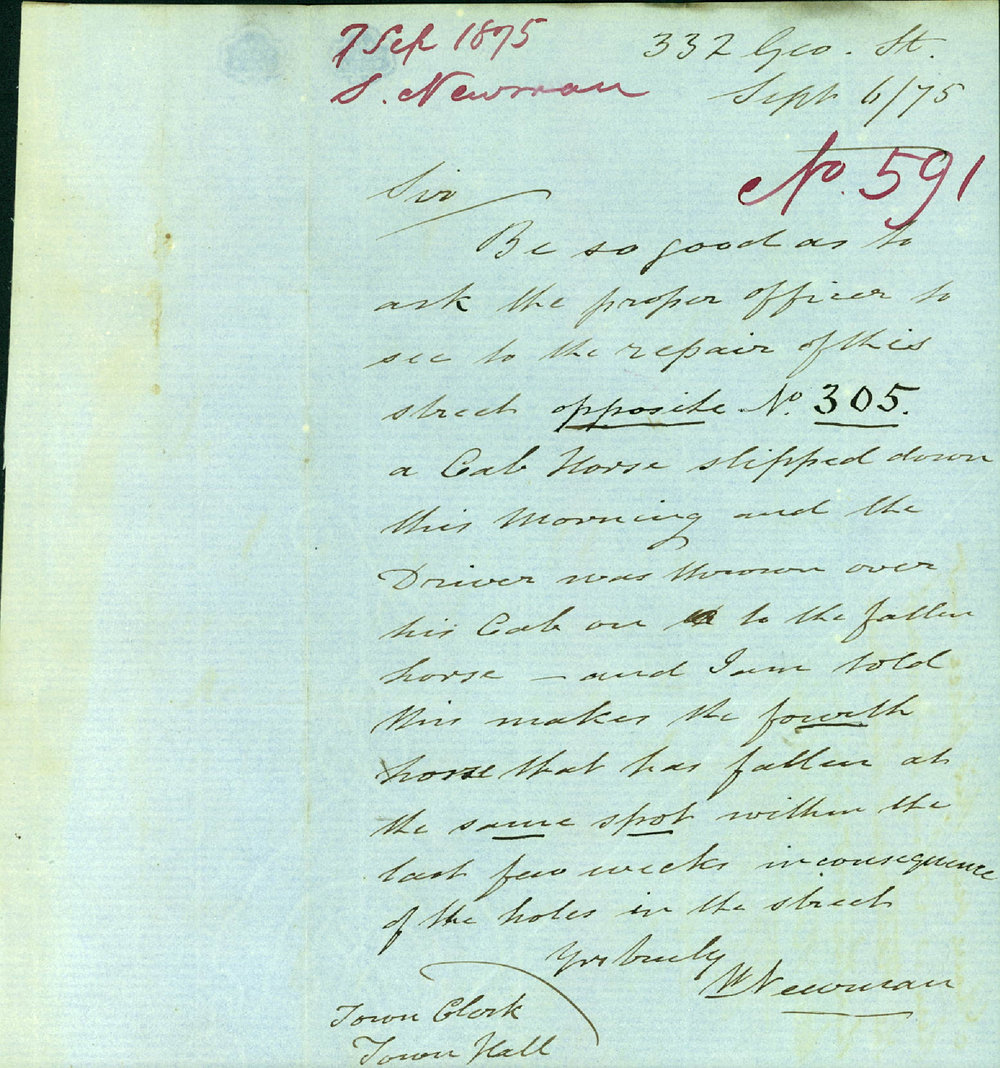 7 Sep 1875
S. Newman
332 Geo. St.
Sept 6/75
No. 591
Sir
Be so good as to
ask the proper officer to
see to the repair of this
street opposite No. 305.
a Cab Horse slipped down
this Morning and the
Driver was thrown over
his Cab on to the fallen
horse – and I am told
this makes the fourth
horse that has fallen at
the same spot within the
last few weeks in consequence
of the holes in the street
Yrs truly
W Newman
Town Clerk
Town Hall